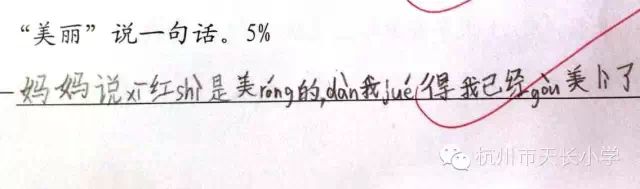 “美丽”说一句话。5%
妈妈说xī红shì是美róng的,dàn我jué得我已经gòu美lì了
杭州市天长小学